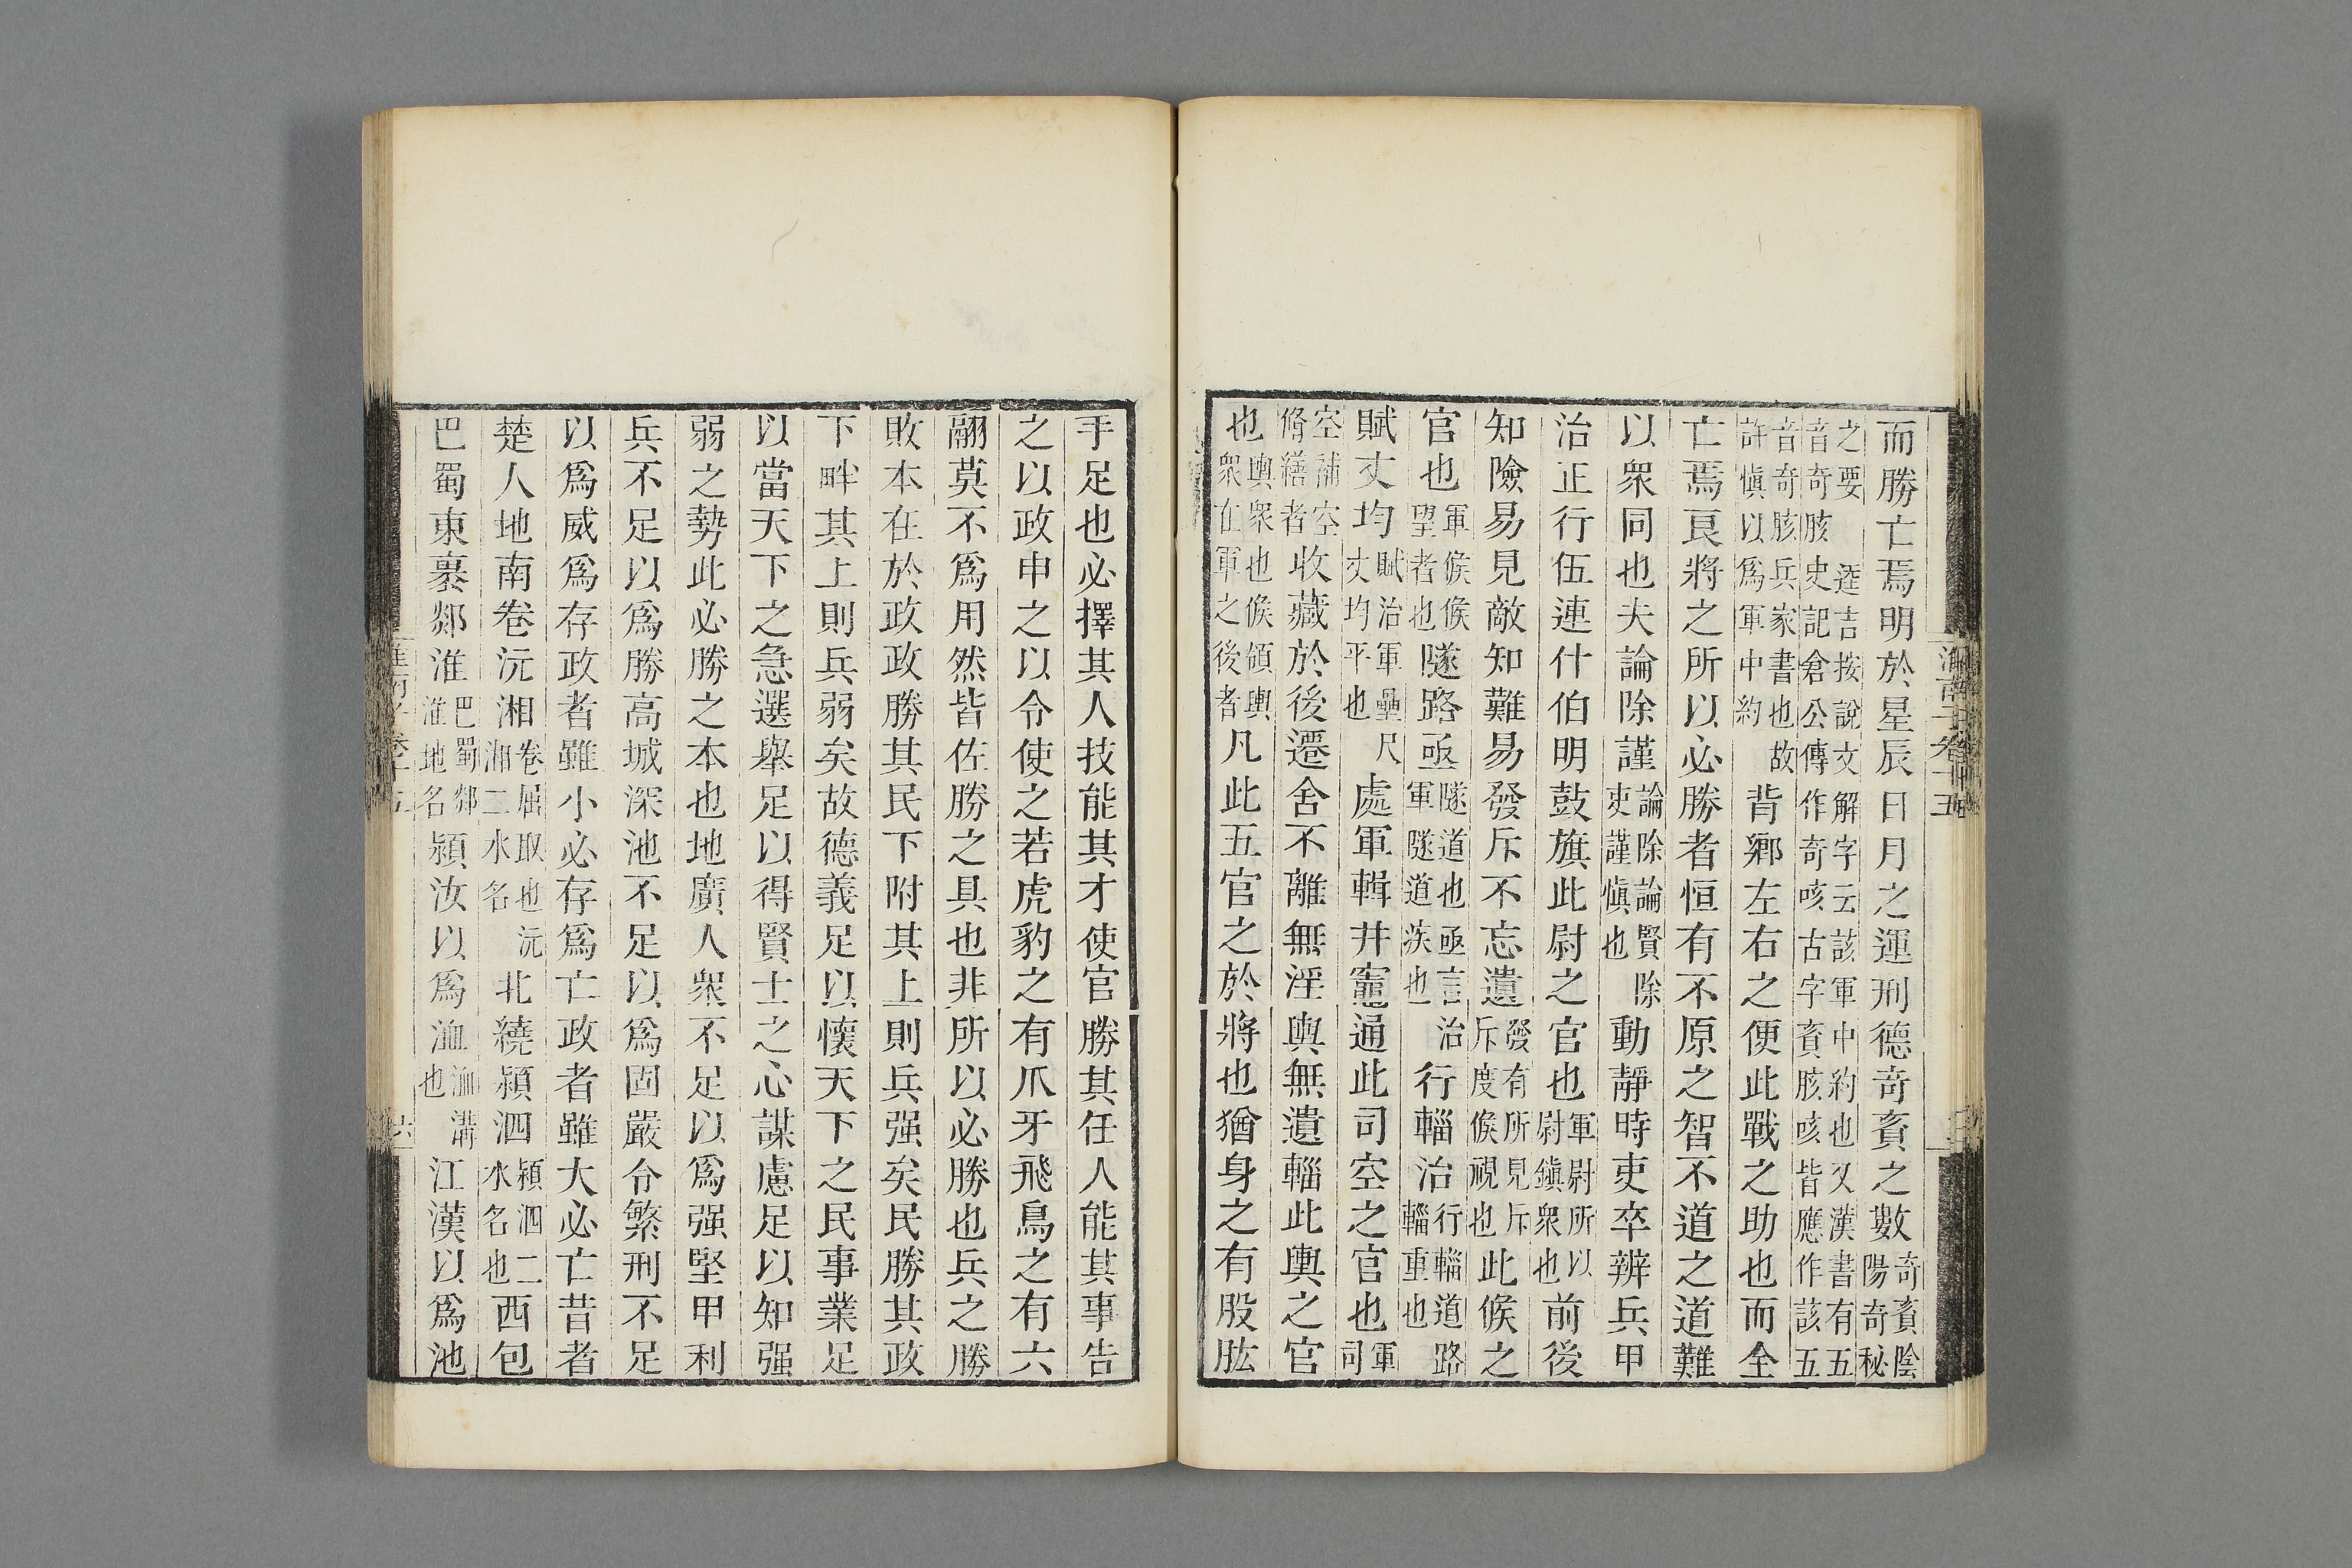 而勝亡焉明於星辰日月之運刑德奇賌之數奇賌陰陽奇秘
之要逵吉按說文解字云該軍中約也又漢書有五音奇胲史記倉公傳作奇咳古字賌胲咳皆應作該五
音奇胲兵家書也故許愼以爲軍中約背鄉左右之便此戰之助也而全
亡焉良將之所以必勝者恒有不原之智不道之道難
以衆同也夫論除謹論除論賢除吏謹愼也動靜時吏卒辨兵甲
治正行伍連什伯明鼓旗此尉之官也軍尉所以尉鎭衆也前後
知險易見敵知難易發斥不忘遺發有所見斥斥度候視也此候之
官也軍候候望者也隧路亟隧道也亟言治軍隧道疾也行輜治行輜道路輜重也
賦丈均賦治軍壘尺丈均平也處軍輯井竈通此司空之官也軍司
空補空脩繕者收藏於後遷舍不離無淫輿無遺輜此輿之官
也輿衆也候領輿衆在軍之後者凡此五官之於將也猶身之有股肱
淮南子卷十五
手足也必擇其人技能其才使官勝其任人能其事告
之以政申之以令使之若虎豹之有爪牙飛鳥之有六
翮莫不爲用然皆佐勝之具也非所以必勝也兵之勝
敗本在於政政勝其民下附其上則兵强矣民勝其政
下畔其上則兵弱矣故德義足以懷天下之民事業足
以當天下之急選舉足以得賢士之心謀慮足以知强
弱之勢此必勝之本也地廣人衆不足以爲强堅甲利
兵不足以爲勝高城深池不足以爲固嚴令繁刑不足
以爲威爲存政者雖小必存爲亡政者雖大必亡昔者
楚人地南卷沅湘卷屈取也沅湘二水名北繞潁泗潁泗二水名也西包
巴蜀東裹郯淮巴蜀郯淮地名潁汝以爲洫洫溝也江漢以爲池
淮南子卷十五
六